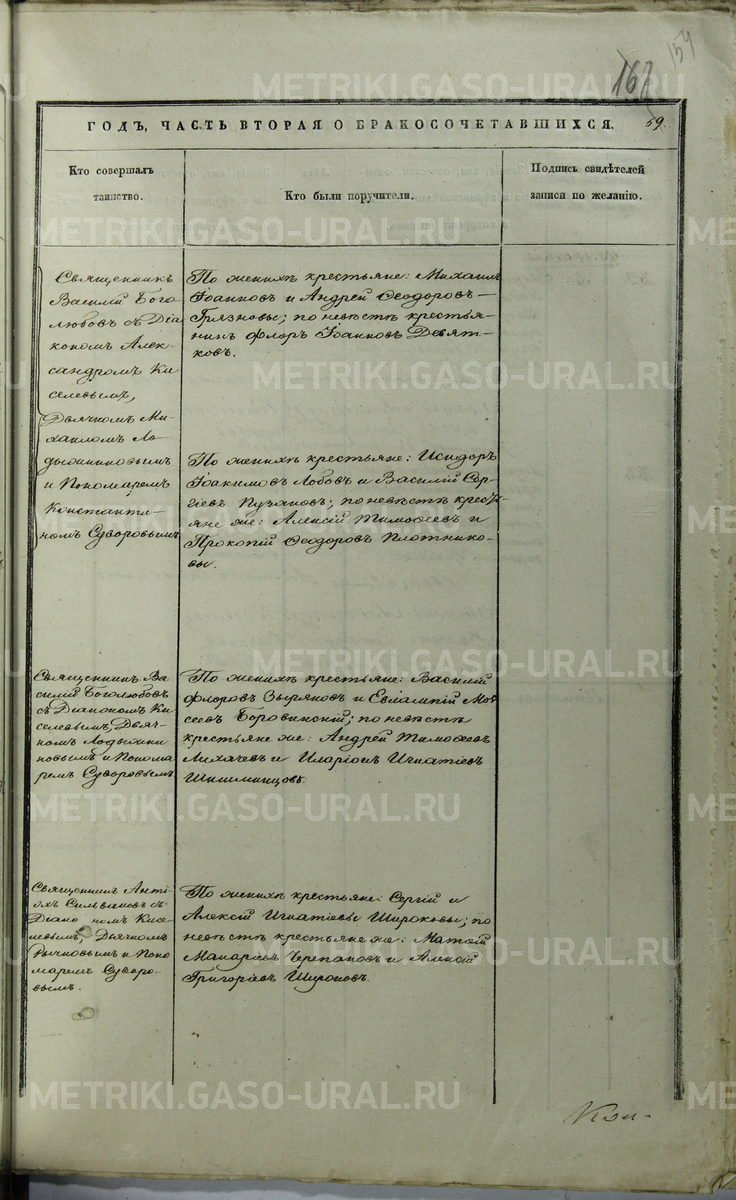 154
167
METRIKI.GASO-URAL.RU
ГОДЪ, ЧАСТЬ ВТОРАЯ О БРАКОСОЧЕТАВШИХСЯ.
59.
Кто совершалъ
таинство.
Кто были поручители.
Подпись свидѣтелей
записи по желанію.
Священникъ
Василій Бого
любовъ съ Діа
кономъ Алек-
сандромъ Ки
селевымъ,
Дьячкомъ Ми-
хаиломъ Ло-
дыжниковымъ
и Пономаремъ
Константи-
номъ Суворовымъ
По женихѣ крестьяне: Михаилъ
Іоанновъ и Андрей Ѳеодоровъ —
Грязновы; по невѣстѣ крестья-
нинъ Флоръ Іоанновъ Девят-
ковъ.
По женихѣ крестьяне: Исидоръ
Іоакимовъ Лобовъ и Василій Сер-
гіевъ Пузановъ; по невѣстѣ крестья-
яне же: Алексій Тимоѳеевъ и
Прокопій Ѳеодоровъ Плотнико-
вы.
Священникъ Ва
силій Боголюбовъ
съ Діакономъ Ки
селевымъ, Дьяч-
комъ Лодыжни
ковымъ и Понома
ремъ Суворовымъ
По женихѣ крестьяне: Василій
Флоровъ Зыряновъ и Евлампій Мои
сеевъ Боровинскій; по невѣстѣ
крестьяне же: Андрей Тимоѳеевъ
Лихачевъ и Иларіонъ Игнатіевъ
Шипицинцовъ.
Священникъ Анті-
охъ Сильвановъ съ
Діако номъ Кисе-
левымъ, Дьячкомъ
Рычковымъ и Поно
маремъ Суворо-
вымъ.
По женихѣ крестьяне: Сергій и
Алексій Игнатіевы Широковы; по
невѣстѣ крестьяне же: Матѳій
Макаріевъ Черепановъ и Алексій
Григоріевъ Широковъ.